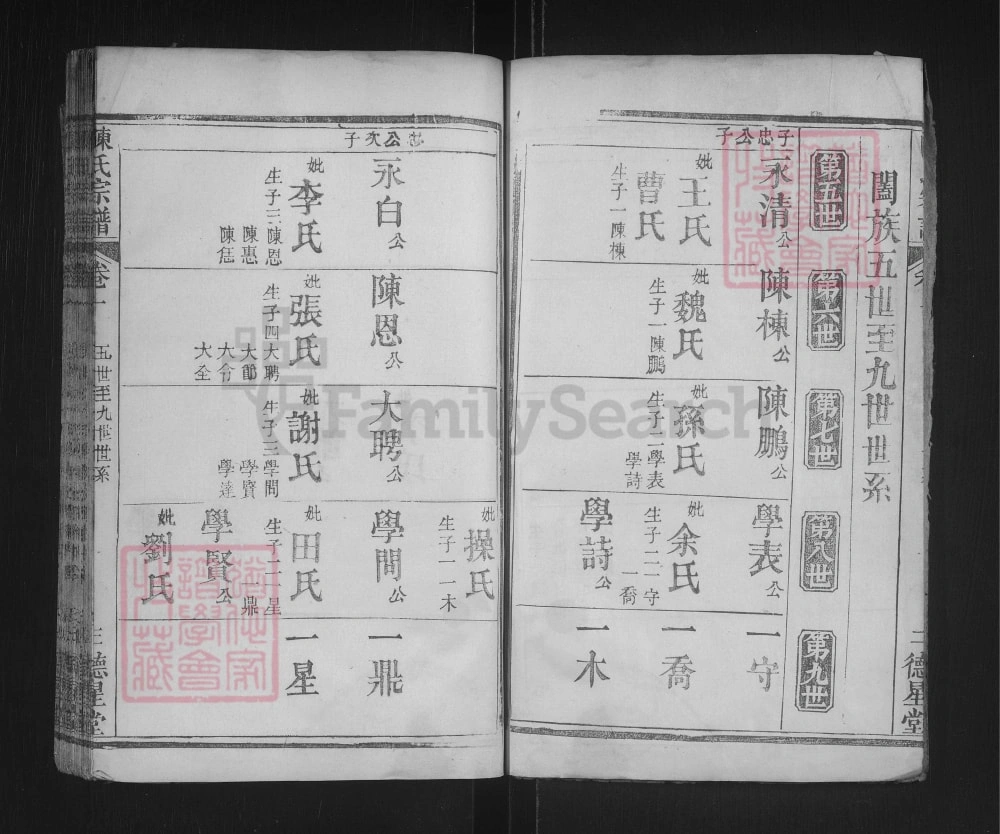 闔族五世至九世世系
第五世
第六世
第七世
第八世
第九世
子忠公子
永清公
妣王氏
曹氏
生子一陳棟
陳棟公
妣魏氏
生子一陳鵬
陳鵬公
妣孫氏
生子二學表
學詩
學表公
妣余氏
生子二一守
一喬
學詩公
一守
一喬
一木
德星堂
忠公次子
永白公
妣李氏
生子三陳恩
陳惠
陳恁
陳恩公
妣張氏
生子四大聘
大節
大令
大全
大聘公
妣謝氏
生子三學問
學賢
學達
妣操氏
生子一一木
學問公
妣田氏
生子二一星
一鼎
學賢公
妣劉氏
一鼎
一星
陳氏宗譜
卷一
五世至九世世系
三
德星堂
FamilySearch